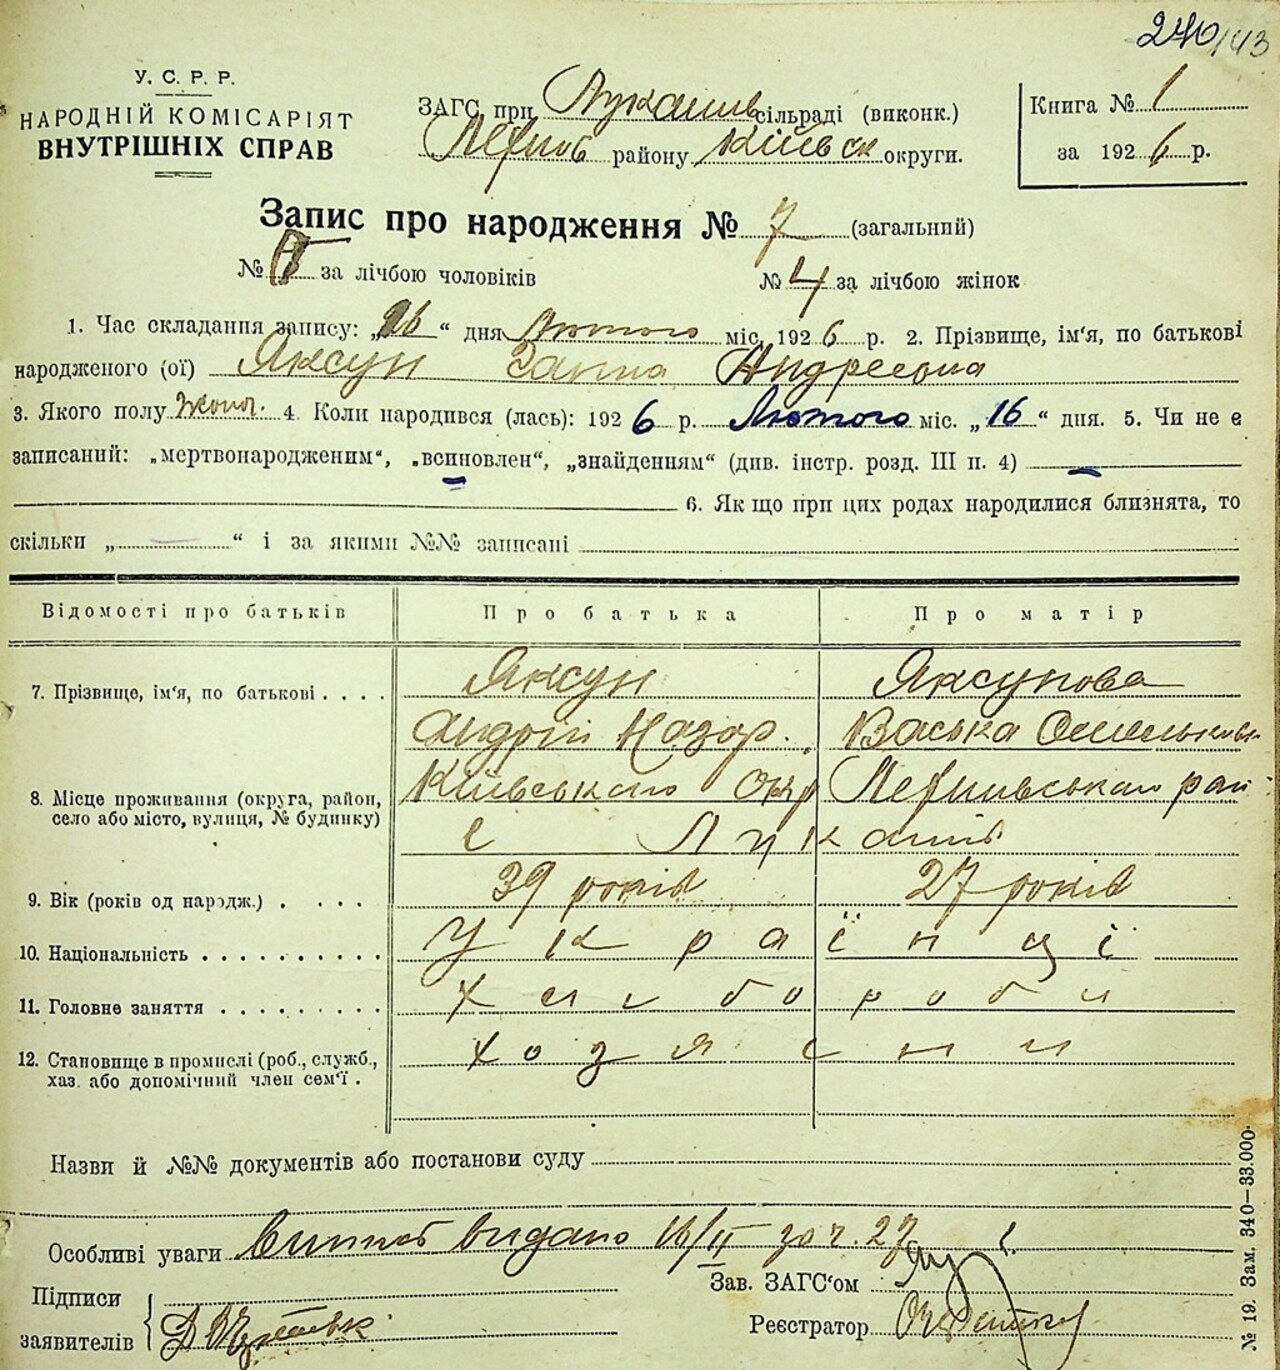 240/143
У. С. Р. Р.
НАРОДНІЙ КОМІСАРІЯТ
ВНУТРІШНІХ СПРАВ
ЗАГС при Лукашів сільраді (виконк.)
району Київськ округи.
Книга № 1
за 1926 р.
Запис про народження № 7 (загальний)
№ за лічбою чоловіків № 4 за лічбою жінок
1. Час складання запису: „16“ дня Лютого міс. 1926 р. 2. Прізвище, ім'я, по батькові
народженого (ої) Яксун Ганна Андреєвна
3. Якого полу Жоноч. 4. Коли народився (лась): 1926 р. Лютого міс. „16“ дня. 5. Чи не є
записаний: „мертвонародженим“, „всиновлен“, „знайденням“ (див. інстр. розд. III п. 4) —
6. Як що при цих родах народилися близнята, то
скільки „ — “ і за якими №№ записані
Відомості про батьків Про батька Про матір
7. Прізвище, ім'я, по батькові . . . . Яксун Яксунова
Андрій Назар. Васька Омельков
8. Місце проживання (округа, район, Київського окр рай
село або місто, вулиця, № будинку) с Лукашів
9. Вік (років од народж.) . . . . 39 років 27 років
10. Національність . . . . . . . . . . Українці
11. Головне заняття . . . . . . . . . Хлибороби
12. Становище в промислі (роб., служб., Хозяєни
хаз. або допомічний член сем'ї .
Назви й №№ документів або постанови суду
Особливі уваги видано 16/II за ч. 27
Підписи
заявителів
Зав. ЗАГС'ом
Реєстратор
№ 19. Зам. 340—33.000.